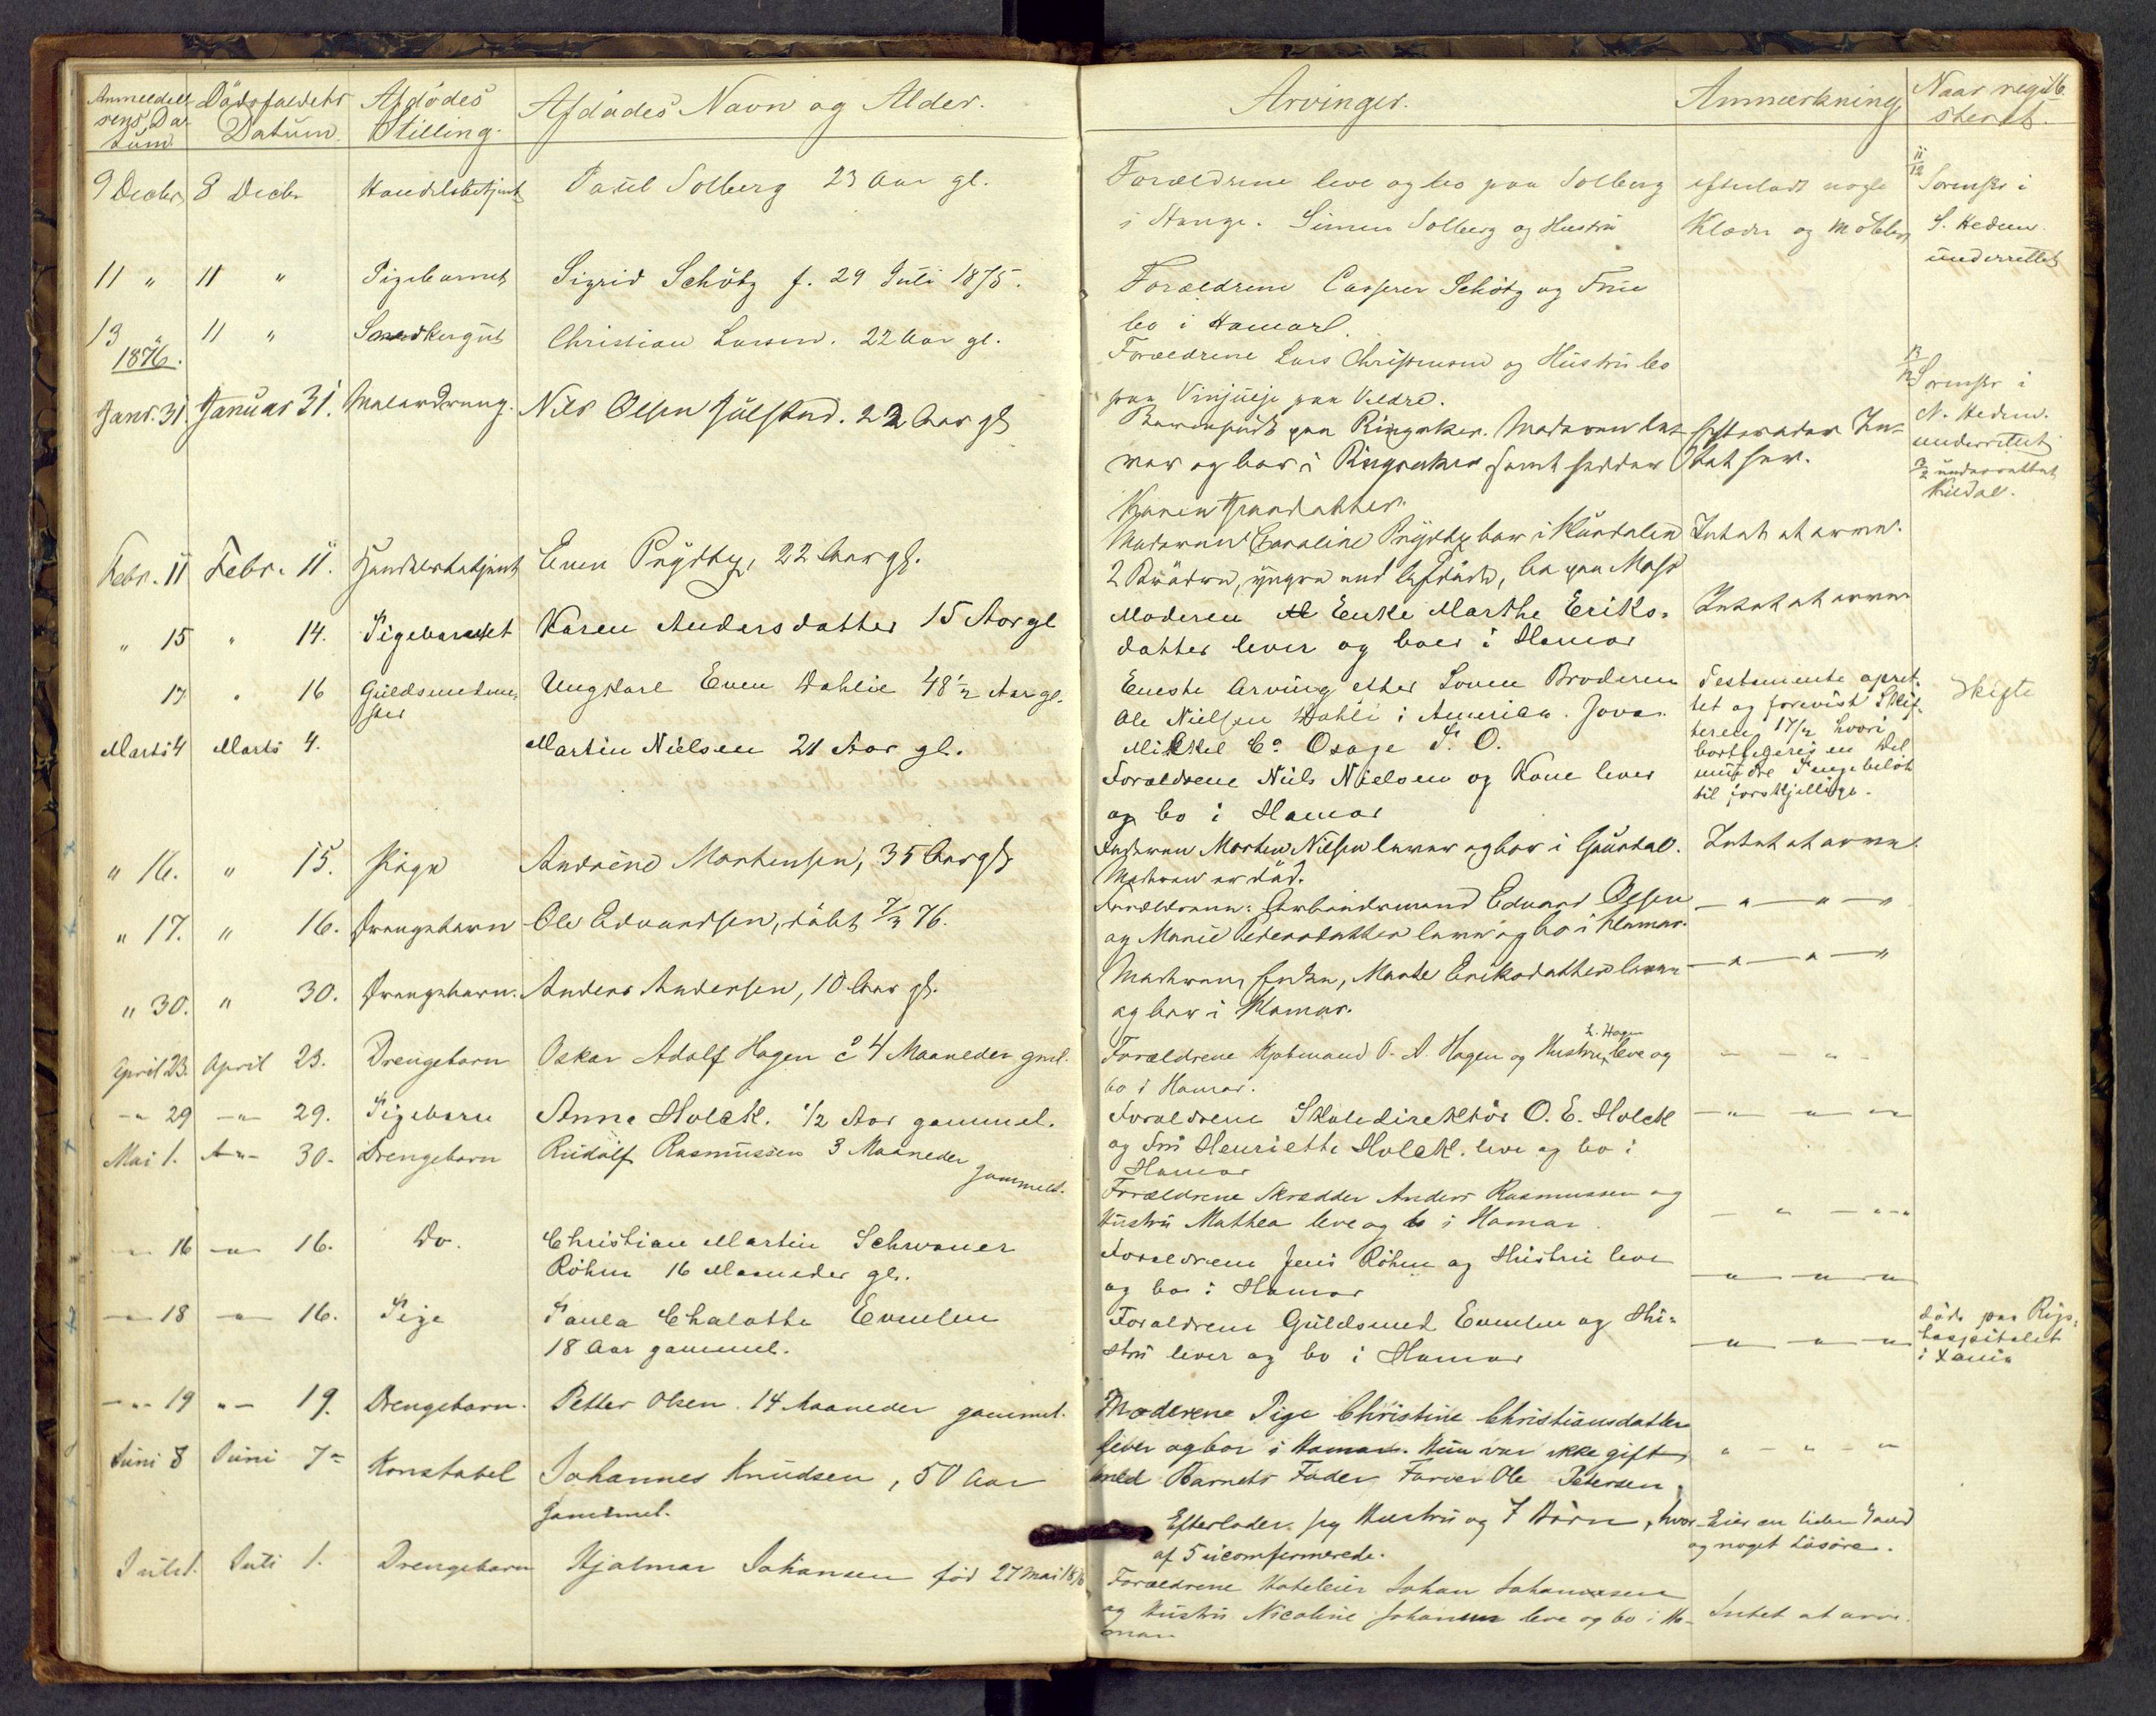 Anmeldel- Dödsfaldets Afdödes Afdödes Navn og Alder. Arvinger. Anmærkning Naar regi-
sens Da- Datum. Stilling. steret.
tum
9 Decbr 8 Decbr Handelsbetjent Paul Solberg 23 Aar gl. Forældrene leve og bo paa Solberg efterladt nogle 11/12 Sorenskr i
i Stange. Simen Solberg og Hustru Klæder og Möbler S. Hedem.
underrettet
11 " 11 " Pigebarnet Sigrid Schötz f. 29 Juli 1875. Forældrene Casserer Schötz og Frue
bo i Hamar.
13 " 11 " Snedkergut Christian Larsen. 22 Aar gl. Forældrene Lars Christensen og Hustru bo
1876. paa Vinjueje paa Veldre. 13/12 Sorenskr i
N. Hedem.
underrettet
Janr. 31. Januar 31. Malerdreng. Nils Olsen Julstad. 22 Aar gl. Barnefödt paa Ringsaker. Moderen lever og bor i Ringsaker samt Intet
2/2 underrettet
Febr. 11 Febr. 11. Handelsbetjent Even Prydtz, 22 Aar gl. Moderen Caroline Prydtz bor i Intet at arve.
2 Brödre, yngre end Afdöde, bo paa
" 15 " 14. Pigebarnet Karen Andersdatter 15 Aar gl Moderen Enke Marthe Eriks- Intet at arve
datter lever og boer i Hamar
17 " 16 Guldsmedmester Ungkarl Even Dahlie 48 1/2 Aar gl. Eneste Arving efter Loven Broderen Testamente opret- Skifte
Ole Nielsen Dahli i Amerika. Jova. tet og forevist Skif-
Mikkel Co. Osage P. O. teren 17/2 hvori
bortlegeres en Del
mindre Pengebeløb
til forskjellige.
Marts 4 Marts 4. Martin Nielsen 21 Aar gl. Forældrene Niels Nielsen og Kone lever
og bo i Hamar
" 16. " 15. Pige Andrine Mortensen, 35 Aar gl. Faderen Morten Nilsen lever og bor i Intet at arve.
Moderen er död.
" 17. " 16. Drengebarn Ole Eduardsen, döbt 7/3 76. Forældrene: Arbeidsmand Eduard Olsen — " — " — "
og Marie Pedersdatter lever og bo i Hamar.
" 30. " 30. Drengebarn. Anders Andersen, 10 Aar gl. Moderen, Enke, Marte Eriksdatter lever — " — " — "
og bor i Hamar.
April 23. April 23. Drengebarn Oskar Adolf Hagen 4 Maaneder gml. Forældrene Kjøbmand O. A. Hagen og Hustru L. Hagen leve og — — " —
bo i Hamar.
— " 29 — " — 29. Pigebarn Anna Holck. 1/2 Aar gammel. Forældrene Skoledirektör O. E. Holck — " — " — "
og Fru Henriette Holck. leve og bo i
Hamar
Mai 1. A — " — 30. Drengebarn Rudolf Rasmussen 3 Maaneder gammel. Forældrene Skrædder Anders Rasmussen og
Hustru Mathea leve og bo i Hamar. — " — " — "
— " 16 — " — 16. Do. Christian Martin Schwaner Forældrene Jens Röhm og Hustru leve
Röhm 16 Maaneder gl. og bo i Hamar — " — " — "
— " 18 — " — 16. Pige Paula Chalotte Evensen Forældrene Guldsmed Evensen og Hu- död paa Rigs-
18 Aar gammel. stru lever og bo i Hamar — " — " — " hospitalet
i Xania
— " 19 " — 19. Drengebarn. Petter Olsen. 14 Maaneder gammel. Moderene Pige Christine Christiansdatter
lever og bor i Hamar. Hun var ikke gift " — " — "
med Barnets Fader Farver Ole Petersen
Juni 8 Juni 7 Konstabel Johannes Knudsen, 50 Aar Efterlader sig Hustru og 7 Börn, hvor- Eier en liden Gaard
gammel. af 5 uconfirmerede. og noget Lösöre.
Juli 1. Juli 1. Drengebarn Hjalmar Johansen föd 27 Mai 1876 Forældrene Hoteleier Johan Johannesen
og Hustru Nicoline Johansen leve og bo i Ha- Intet at arve.
mar